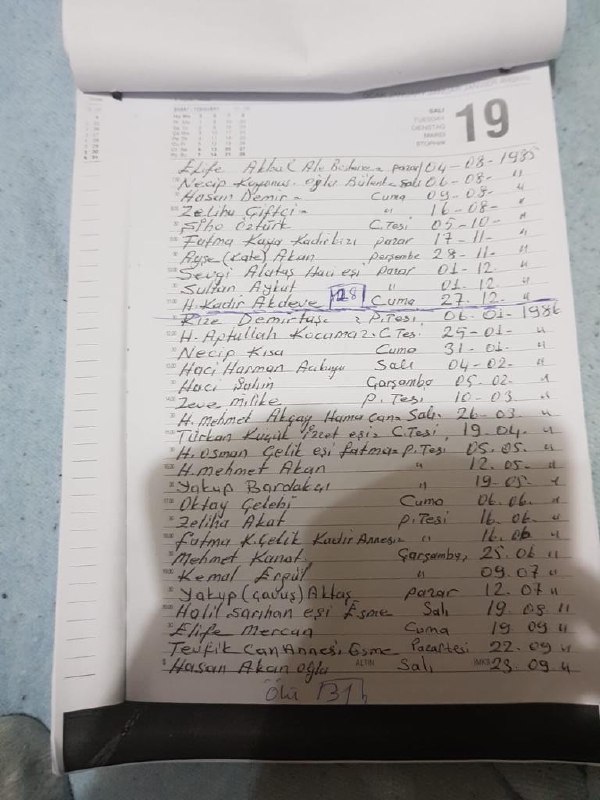 SALI
TUESDAY
DIENSTAG
MARDI
19
Elife Akbal Ali Bostane = pazar 04-08-1985
Necip Kayanus. oğlu Bülent = Salı 06-08- "
Hasan Demir = Cuma 09-08- "
Zeliha Çiftçi = " 16-08- "
Öztürk C.Tesi 05-10- "
Fatma Kaya Kadirkızı pazar 17-11- "
Ayşe (Kate) Akan perşembe 28-11- "
Sevgi Alataş Hacı eşi pazar 01-12- "
Sultan Aykut " 01-12 "
H. Kadir Akdeve 28 Cuma 27-12- "
Rize Demirtaş = P.Tesi 06-01-1986
H. Aptullah Kocamaz = C.Tesi 25-01- "
Necip Kısa Cuma 31-01- "
Hacı Harman Salı 04-02- "
Hacı Şahin Çarşamba 05-02- "
P.Tesi 10-03 "
H. Mehmet Akçay Hamacan = Salı 26-03- "
Türkan Küçük İzzet eşi = C.Tesi 19.04- "
H. Osman Çelik eşi fatma = P.Tesi 05.05. "
H. mehmet Akan " 12.05- "
Yakup Bardakçı " 19-05- "
Oktay Çelebi Cuma 06.06. "
Zeliha Akat P.Tesi 16.06- "
fatma K. Çelik Kadir Annesi = " 16.06 "
Mehmet Kanat Çarşamba, 25.06 "
Kemal Ergül " 09.07 "
Yakup (çavuş) Aktaş pazar 12.07 "
Halil Sarıhan eşi Esme Salı 19 08 "
Elife Mercan Cuma 19 09 "
Tevfik Can Annesi Esme Pazartesi 22.09 "
Hasan Akan oğlu ALTIN Salı IMKB 23.09 "
Ölü 31